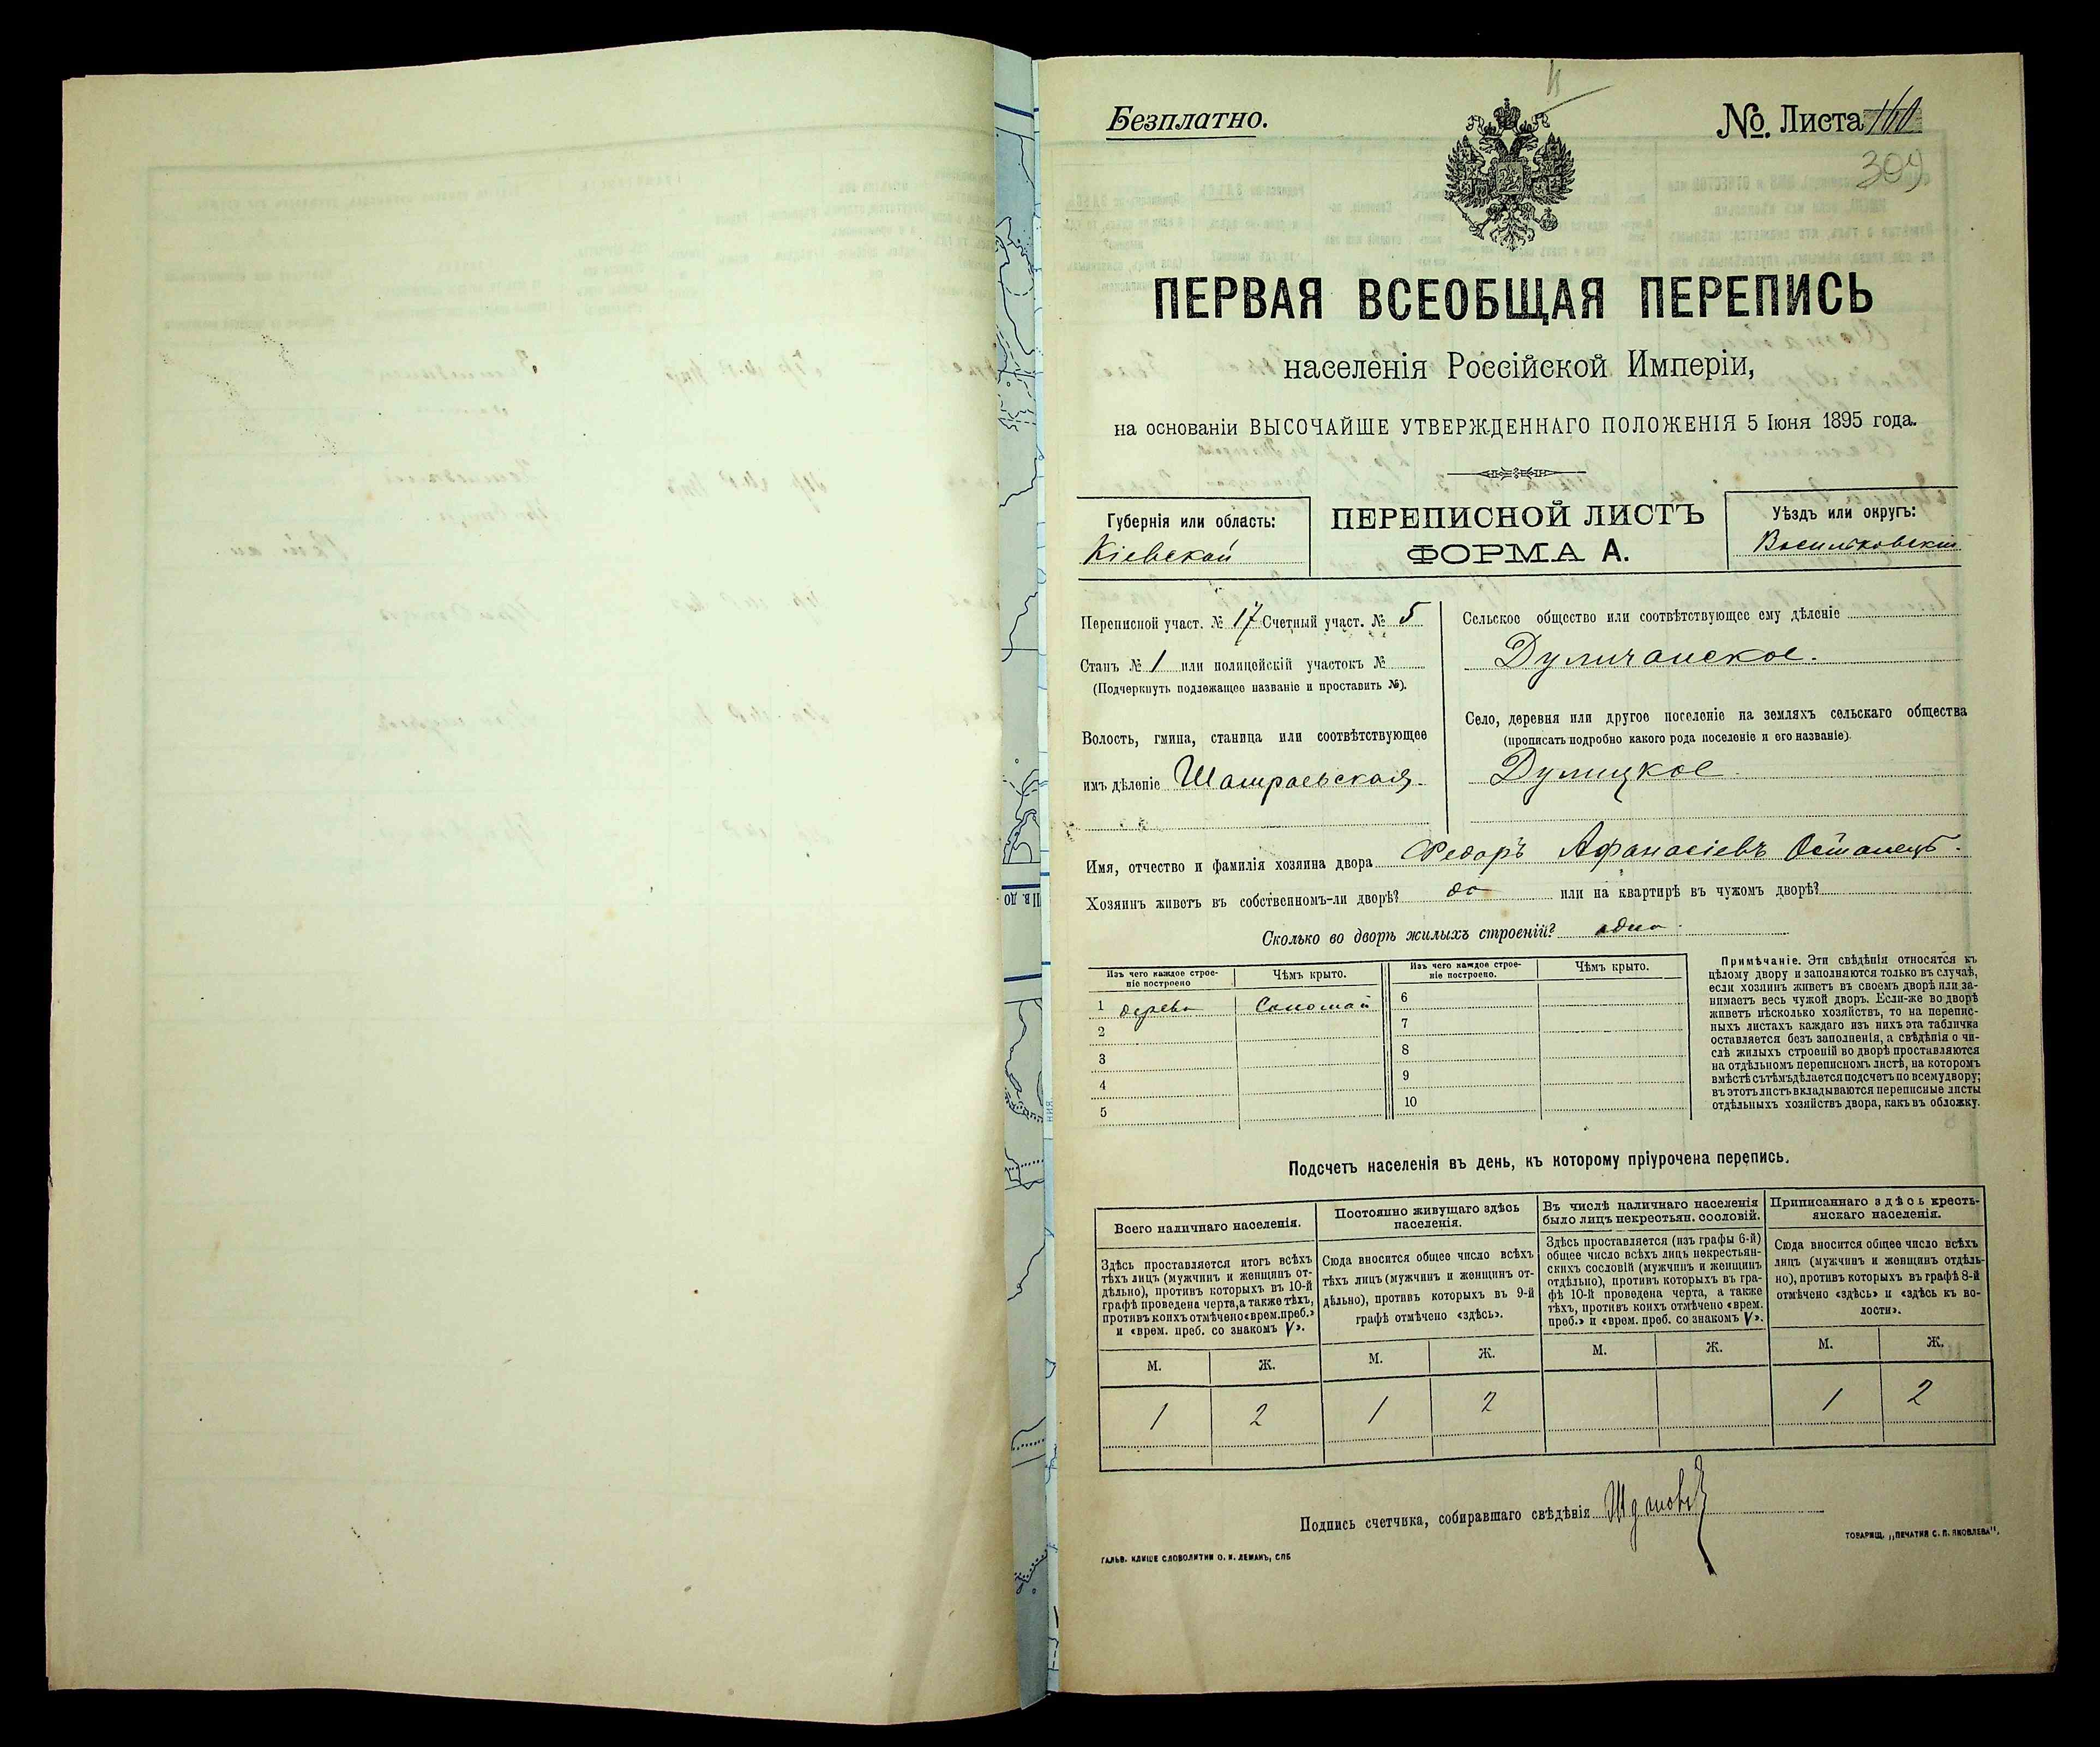 Безплатно.
№. Листа 160
309
ПЕРВАЯ ВСЕОБЩАЯ ПЕРЕПИСЬ
населенія Россійской Имперіи,
на основаніи ВЫСОЧАЙШЕ УТВЕРЖДЕННАГО ПОЛОЖЕНІЯ 5 Іюня 1895 года.
Губернія или область:
Кіевской
ПЕРЕПИСНОЙ ЛИСТЪ
ФОРМА А.
Уѣздъ или округъ:
Васильковскій
Переписной участ. № 17 Счетный участ. № 5
Станъ № 1 или полицейскій участокъ №
(Подчеркнуть подлежащее названіе и проставить №).
Волость, гмина, станица или соотвѣтствующее
имъ дѣленіе Шамраевская
Сельское общество или соотвѣтствующее ему дѣленіе
Дуличанское.
Село, деревня или другое поселеніе на земляхъ сельскаго общества
(прописать подробно какого рода поселеніе и его названіе)
Дулицкое
Имя, отчество и фамилія хозяина двора Федоръ Афанасіевъ Остапецъ.
Хозяинъ живетъ въ собственномъ-ли дворѣ? да или на квартирѣ въ чужомъ дворѣ?
Сколько во дворѣ жилыхъ строеній? одно.
Изъ чего каждое строе-
ніе построено
Чѣмъ крыто.
1 дерева Соломой
2
3
4
5
Изъ чего каждое строе-
ніе построено.
Чѣмъ крыто.
6
7
8
9
10
Примѣчаніе. Эти свѣдѣнія относятся къ
цѣлому двору и заполняются только въ случаѣ,
если хозяинъ живетъ въ своемъ дворѣ или за-
нимаетъ весь чужой дворъ. Если-же во дворѣ
живетъ нѣсколько хозяйствъ, то на перепис-
ныхъ листахъ каждаго изъ нихъ эта табличка
оставляется безъ заполненія, а свѣдѣнія о чи-
слѣ жилыхъ строеній во дворѣ проставляются
на отдѣльномъ переписномъ листѣ, на которомъ
вмѣстѣ съ тѣмъ дѣлается подсчетъ по всему двору;
въ этотъ листъ вкладываются переписные листы
отдѣльныхъ хозяйствъ двора, какъ въ обложку.
Подсчетъ населенія въ день, къ которому пріурочена перепись.
Всего наличнаго населенія.
Здѣсь проставляется итогъ всѣхъ
тѣхъ лицъ (мужчинъ и женщинъ от-
дѣльно), противъ которыхъ въ 10-й
графѣ проведена черта, а также тѣхъ,
противъ коихъ отмѣчено «врем. преб.»
и «врем. преб. со знакомъ V».
М. Ж.
1 2
Постоянно живущаго здѣсь
населенія.
Сюда вносится общее число всѣхъ
тѣхъ лицъ (мужчинъ и женщинъ от-
дѣльно), противъ которыхъ въ 9-й
графѣ отмѣчено «здѣсь».
М. Ж.
1 2
Въ числѣ наличнаго населенія
было лицъ некрестьян. сословій.
Здѣсь проставляется (изъ графы 6-й)
общее число всѣхъ лицъ некрестьян-
скихъ сословій (мужчинъ и женщинъ
отдѣльно), противъ которыхъ въ гра-
фѣ 10-й проведена черта, а также
тѣхъ, противъ коихъ отмѣчено «врем.
преб.» и «врем. преб. со знакомъ V».
М. Ж.
Приписаннаго здѣсь кресть-
янскаго населенія.
Сюда вносится общее число всѣхъ
лицъ (мужчинъ и женщинъ отдѣль-
но), противъ которыхъ въ графѣ 8-й
отмѣчено «здѣсь» и «здѣсь къ во-
лости».
М. Ж.
1 2
Подпись счетчика, собиравшаго свѣдѣнія
ГАЛЬВ. КЛИШЕ СЛОВОЛИТНИ О. И. ЛЕМАНЪ, СПБ
ТОВАРИЩ. „ПЕЧАТНЯ С. П. ЯКОВЛЕВА".